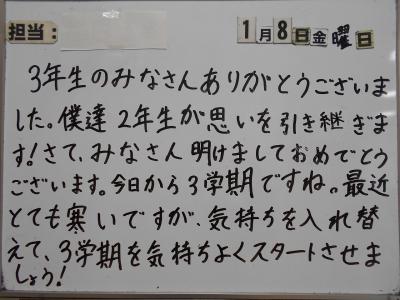 担当：
1月8日金曜日
3年生のみなさんありがとうございま
した。僕達2年生が思いを引き継ぎま
す！さて、みなさん明けましておめでとう
ございます。今日から3学期ですね。最近
とても寒いですが、気持ちを入れ替
えて、3学期を気持ちよくスタートさせま
しょう！